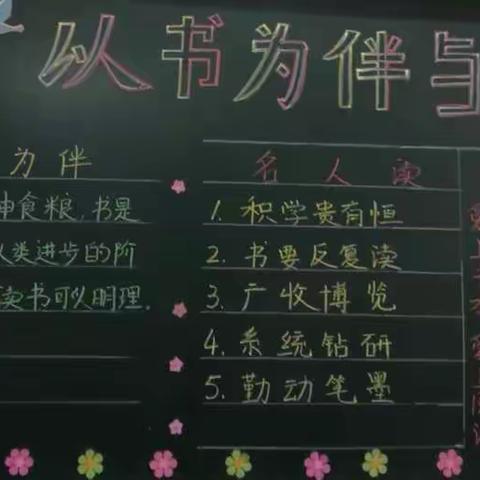 以书为伴与
为伴
神食粮,书是
人类进步的阶
读书可以明理.
名人读
1. 积学贵有恒
2. 书要反复读
3. 广收博览
4. 系统钻研
5. 勤动笔墨